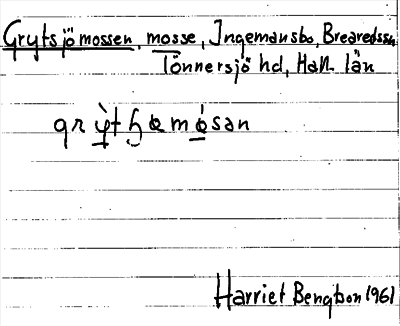 Grytsjömossen, mosse, Ingemansbo, Breareds sn
Tönnersjö hd, Hall. län
Harriet Bengtson 1961